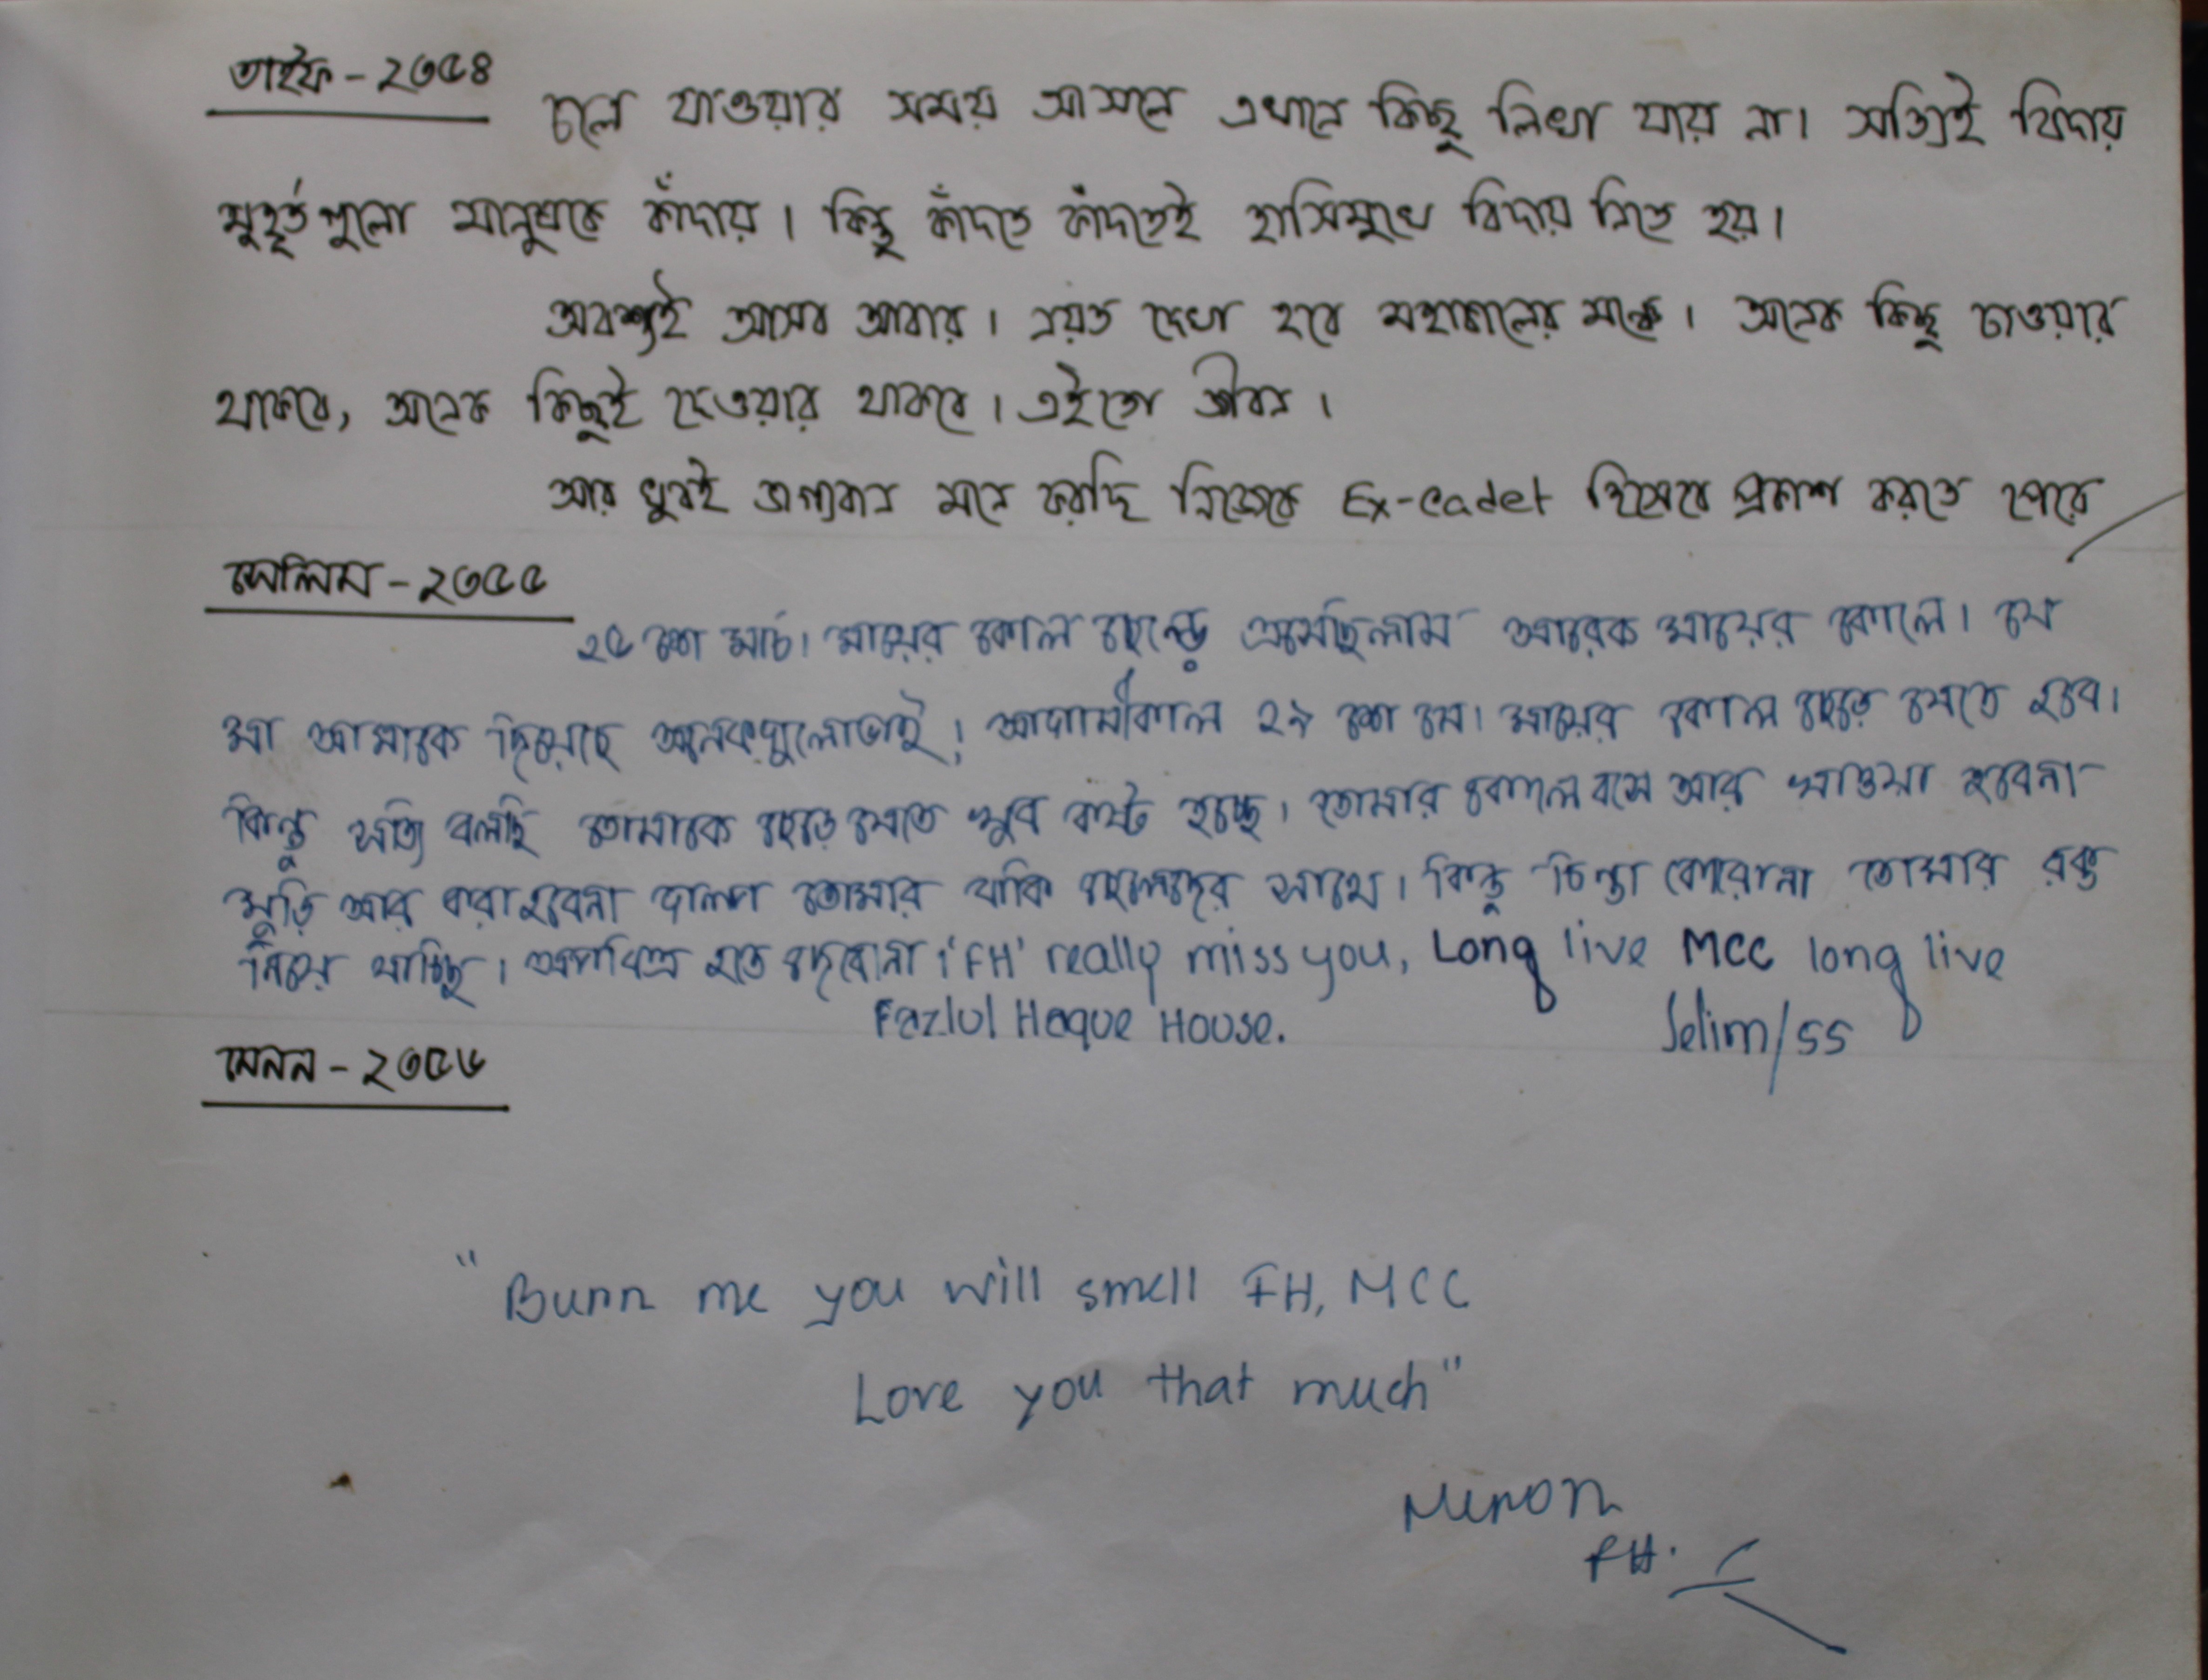 তাইফ - ২৩৫৪
চলে যাওয়ার সময় আসলে এখানে কিছু লিখা যায় না। সত্যিই বিদায়
মুহূর্তগুলো মানুষকে কাঁদায়। কিন্তু কাঁদতে কাঁদতেই হাসিমুখে বিদায় নিতে হয়।
অবশ্যই আসব আবার। হয়ত দেখা হবে মহাকালের মঞ্চে। অনেক কিছু চাওয়ার
থাকবে, অনেক কিছুই দেওয়ার থাকবে। এইতো জীবন।
আর খুবই ভাগ্যবান মনে করছি নিজেকে Ex-cadet হিসেবে প্রকাশ করতে পেরে
সেলিম - ২৩৫৫
২৫ শে মার্চ। মায়ের কোল ছেড়ে এসেছিলাম আরেক মায়ের কোলে। যে
মা আমাকে দিয়েছে অনেকগুলোভাই! আগামীকাল ২৯ শে মে। মায়ের কোল ছেড়ে যেতে হবে।
কিন্তু সত্যি বলছি তোমাকে ছেড়ে যেতে খুব কষ্ট হচ্ছে। তোমার কোলে বসে আর খাওয়া হবেনা
মুড়ি আর করা হবেনা তোমার বাকি ছেলেদের সাথে। কিন্তু চিন্তা কোরোনা তোমার রক্ত
নিয়ে যাচ্ছি। অপবিত্র হতে দেবোনা। 'FH' really miss you, Long live MCC long live
Fazlul Haque House. Selim/55
মেনন - ২৩৫৬
"Burn me you will smell FH, MCC
Love you that much"
Menon
FH.